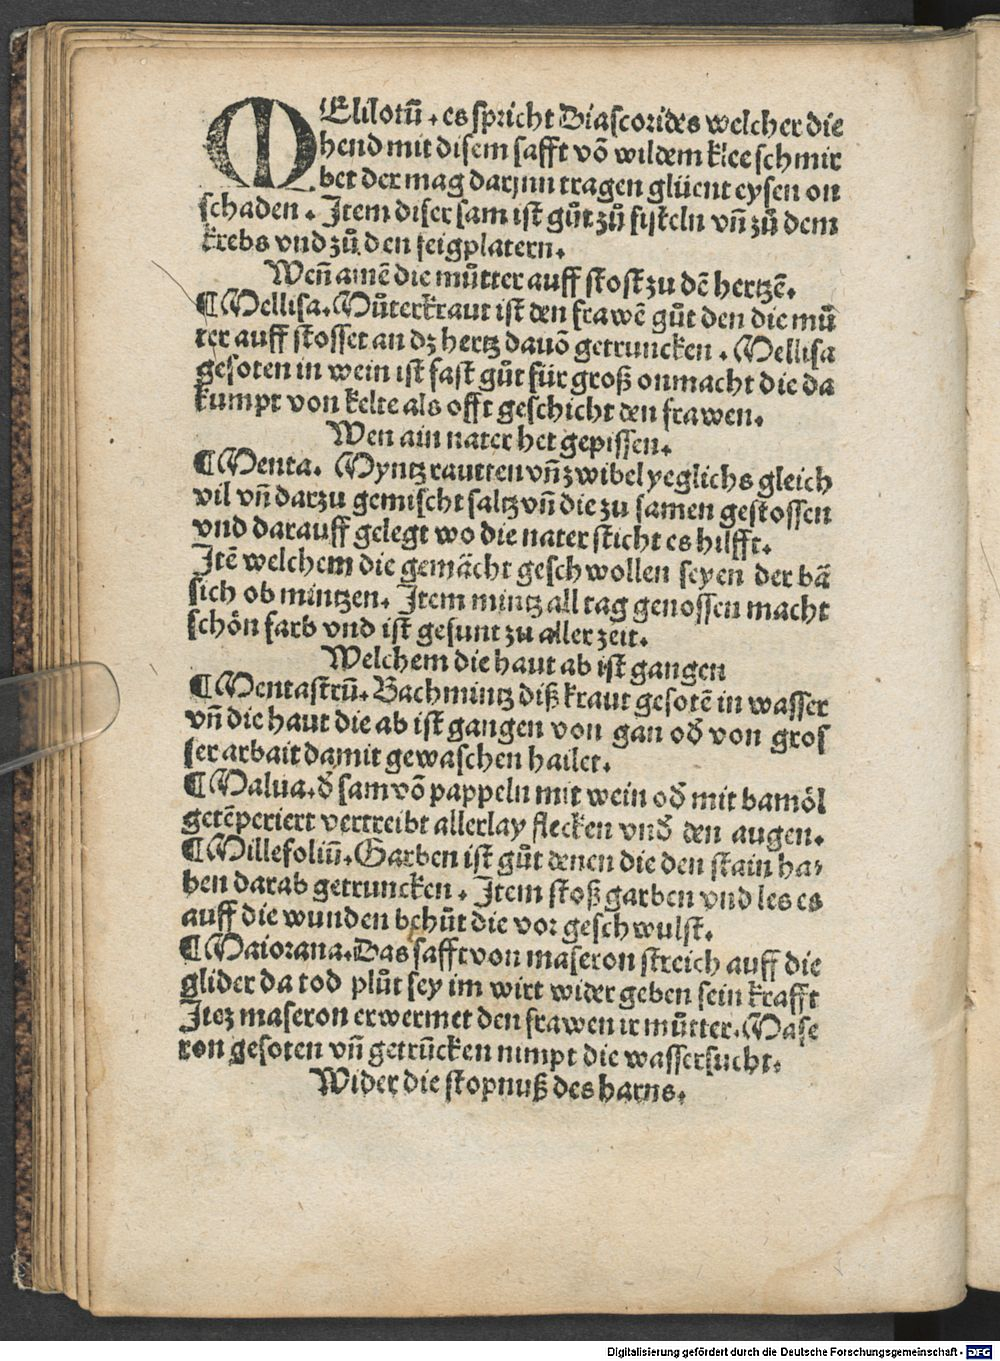 MElilotū. es spricht Diascorides welcher die
hend mit disem safft võ wildem klee schmir
bet der mag darjnn tragen glüent eysen on
schaden. Item diser sam ist gůt zů fisteln vñ zů dem
krebs vnd zů den feigplatern.
Weñ amē die můtter auff stost zu dē hertzē.
¶ Mellisa. Můterkraut ist den frawē gůt den die mů
ter auff stosset an dz hertz dauõ getruncken. Mellisa
gesoten in wein ist fast gůt für groß onmacht die da
kumpt von kelte als offt geschicht den frawen.
Wen ain nater het gepissen.
¶ Menta. Myntz rautten vñ zwibel yeglichs gleich
vil vñ darzu gemischt saltz vñ die zu samen gestossen
vnd darauff gelegt wo die nater sticht es hilfft.
Itē welchem die gemächt geschwollen seyen der bä
sich ob mintzen. Item mintz all tag genossen macht
schön farb vnd ist gesunt zu aller zeit.
Welchem die haut ab ist gangen
¶ Mentastrū. Bachmintz diß kraut gesotē in wasser
vñ die haut die ab ist gangen von gan od̄ von gros
ser arbait damit gewaschen hailet.
¶ Malua. d̄ sam võ pappeln mit wein od̄ mit bamöl
getēperiert vertreibt allerlay flecken vnd̄ den augen.
¶ Millefoliū. Garben ist gůt denen die den stain ha⸗
ben darab getruncken. Item stoß garben vnd les es
auff die wunden behůt die vor geschwulst.
¶ Maiorana. Das safft von maseron streich auff die
glider da tod plůt sey im wirt wider geben sein krafft
Itez maseron erwermet den frawen ir můtter. Mase
ron gesoten vñ getrūcken nimpt die wassersucht.
Wider die stopnuß des harns.
Digitalisierung gefördert durch die Deutsche Forschungsgemeinschaft - DFG